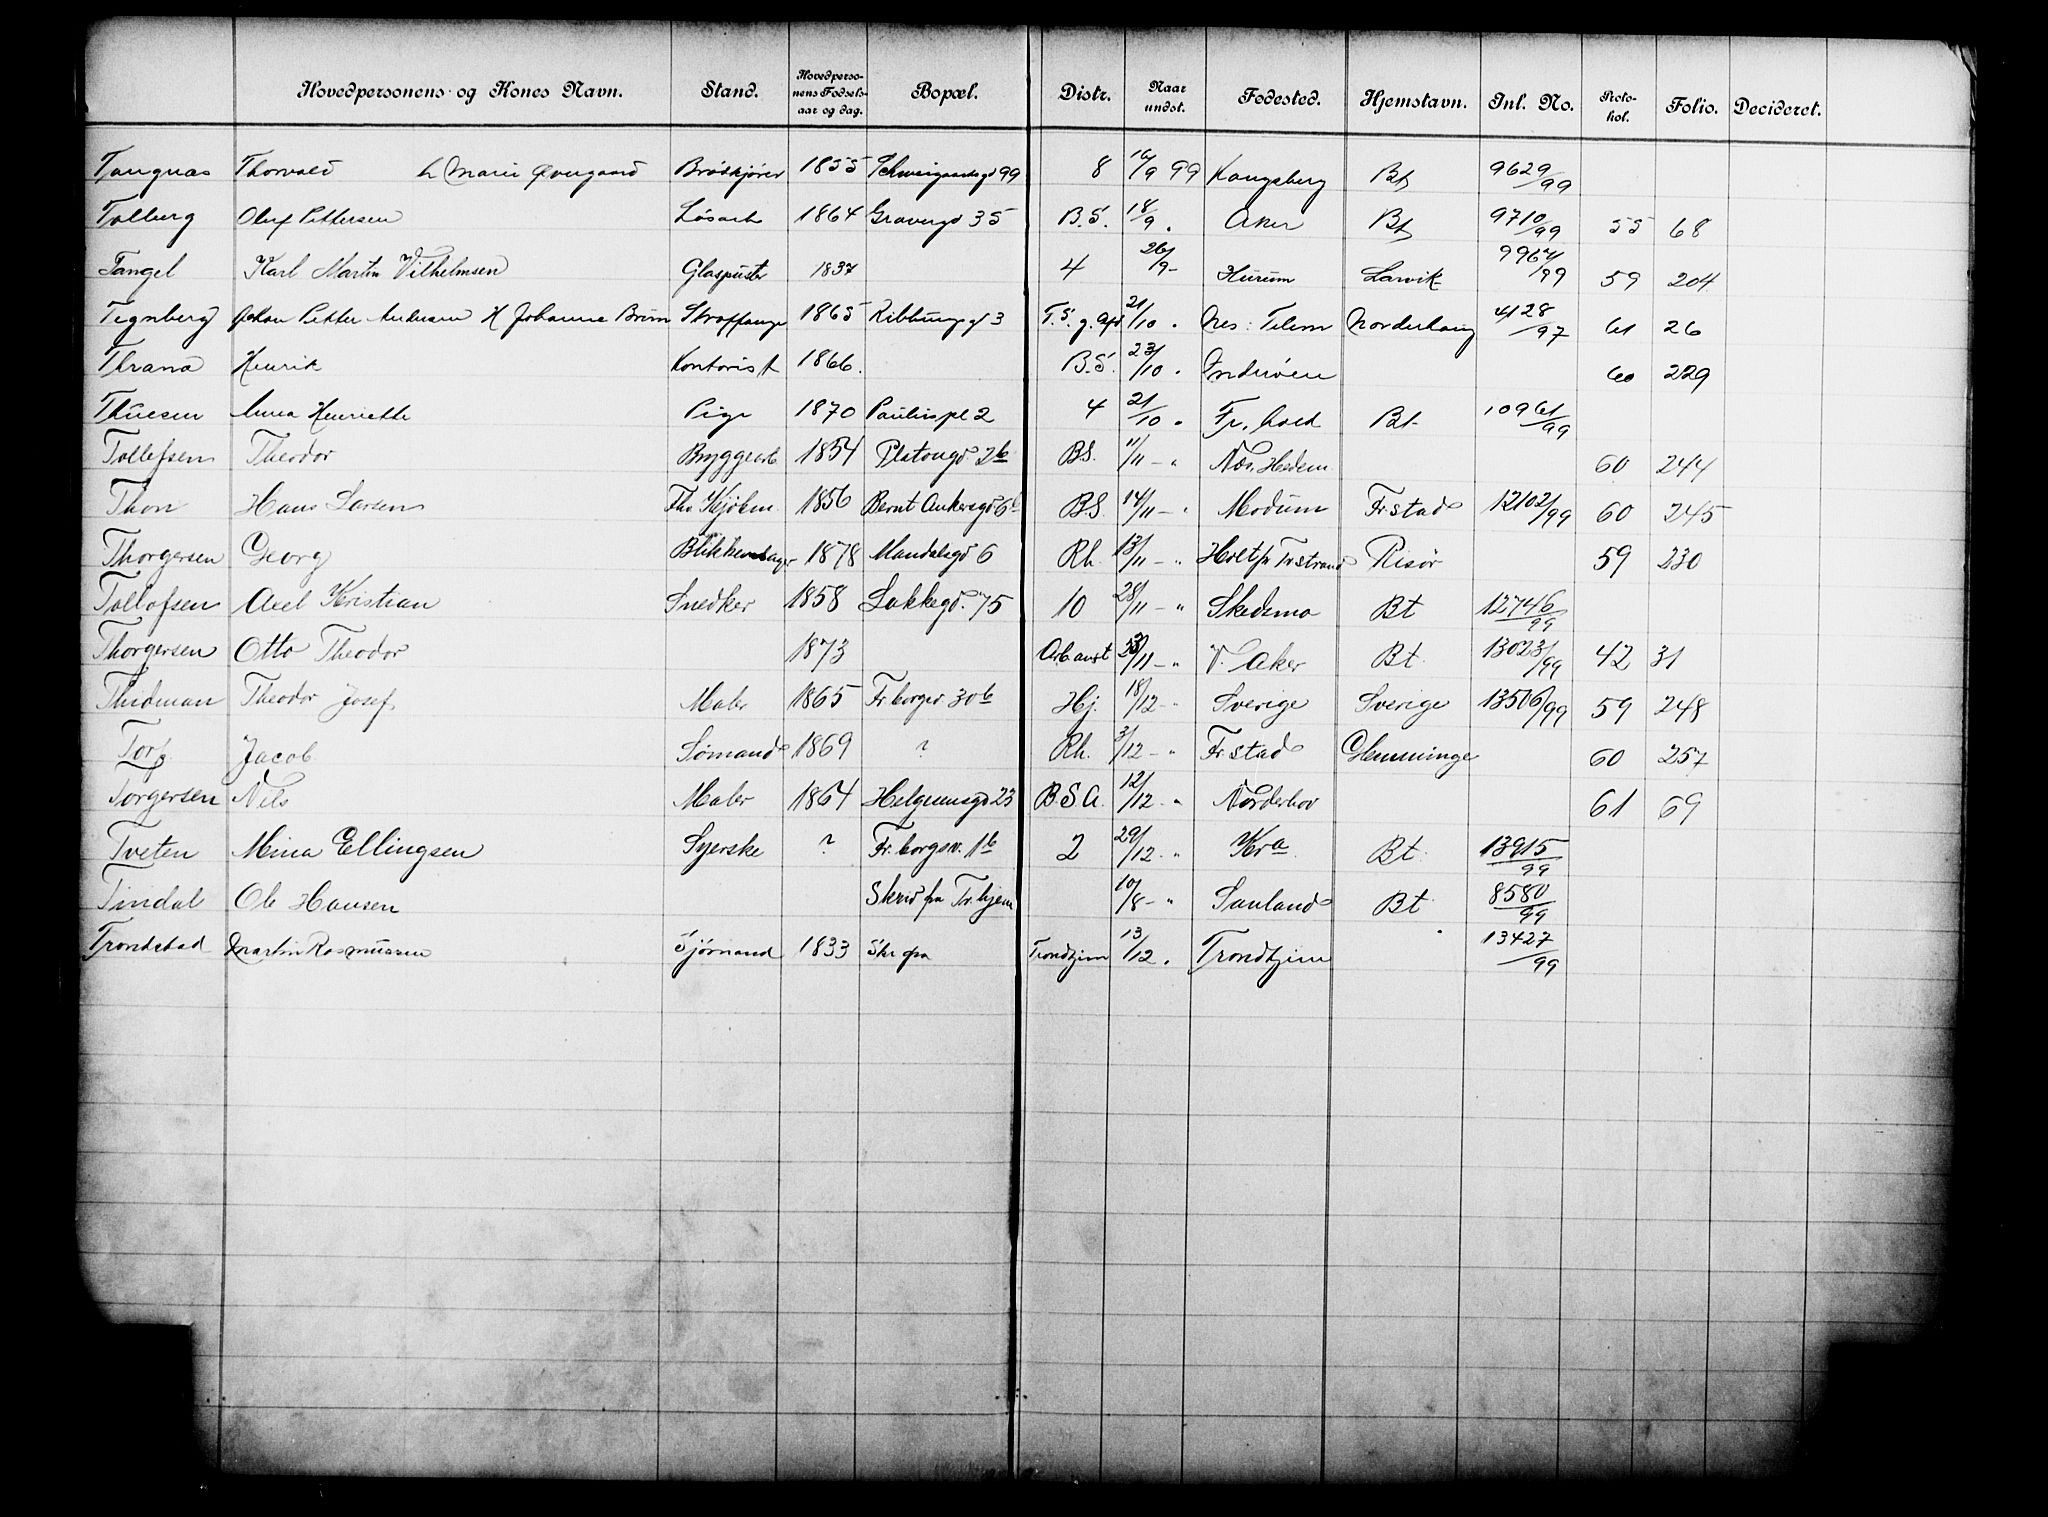 Hovedpersonens og Kones Navn. Stand. Hovedperso-nens Fødsels-aar og dag. Bopæl. Distr. Naar undst. Fødested. Hjemstavn. Inl. No. Proto-kol. Folio. Decideret.
Tangnas Thorvald h Marie Overgaard Brødkjører 1855 Schweigaardsgd 99 8 16/9 99 Kongsberg Bt 9629/99
Tolberg Oluf Pettersen Løsarb 1864 Gravergd 35 B.S. 18/9 " Aker Bt 9710/99 55 68
Tangel Karl Martin Vilhelmsen Glaspuster 1837 4 26/9 - Hurum Larvik 9964/99 59 204
Tegnberg Johan Petter Andersen H Johanne Brun Straffange 1865 3 T.S. g. afd 21/10 " Nes: Telem Norderhaug 4128/97 61 26
Thrana Henrik Kontorist 1866. B.S. 23/10 " Inderøen 60 229
Thuesen Anna Henriette Pige 1870 Paulus pl 2 4 21/10 " Fr. hald Bt 10961/99
Tollefsen Theodor Bryggearb 1854 Platougd. 2b B.S. 11/11 - " Nes. Hedem. 60 244
Thon Hans Larsen Fhv Kjøbm 1856 Bernt Ankersgd 6b B.S. 14/11 - " Modum Frstad 12102/99 60 245
Thorgersen Georg Blikkenslager 1878 Mandalsgd 6 Rh. 13/11 - " Holt pr Tvstrand Risør 59 230
Tollofsen Axel Kristian Snedker 1858 Lakkegd. 75 10 28/11 - " Skedsmo Bt 12746/99
Thorgersen Otto Theodor 1873 Arb anst /11 - " V. Aker Bt. 13023/99 42 31
Thidman Theodor Josef Maler 1865 Fr borgv. 30b Hj. 18/12 - " Sverige Sverige 13506/99 59 248
Torp Jacob Sømand 1869 ? Rh. 3/12 - " Frstad Glemminge 60 257
Torgersen Nils Maler 1864 Helgesensgd 23 B.S.A. 12/12 - " Norderhov 61 69
Tveten Mina Ellingsen Syerske ? Fr. borgsv. 1b 2 29/12 - " Kra Bt. 13915/99
Tindal Ole Hansen Skriv fra Trhjem 10/8 - " Sauland Bt 8580/99
Trondstad Martin Rasmussen Sjømand 1833 Skr fra Trondhjem 13/12 " Trondhjem " 13427/99